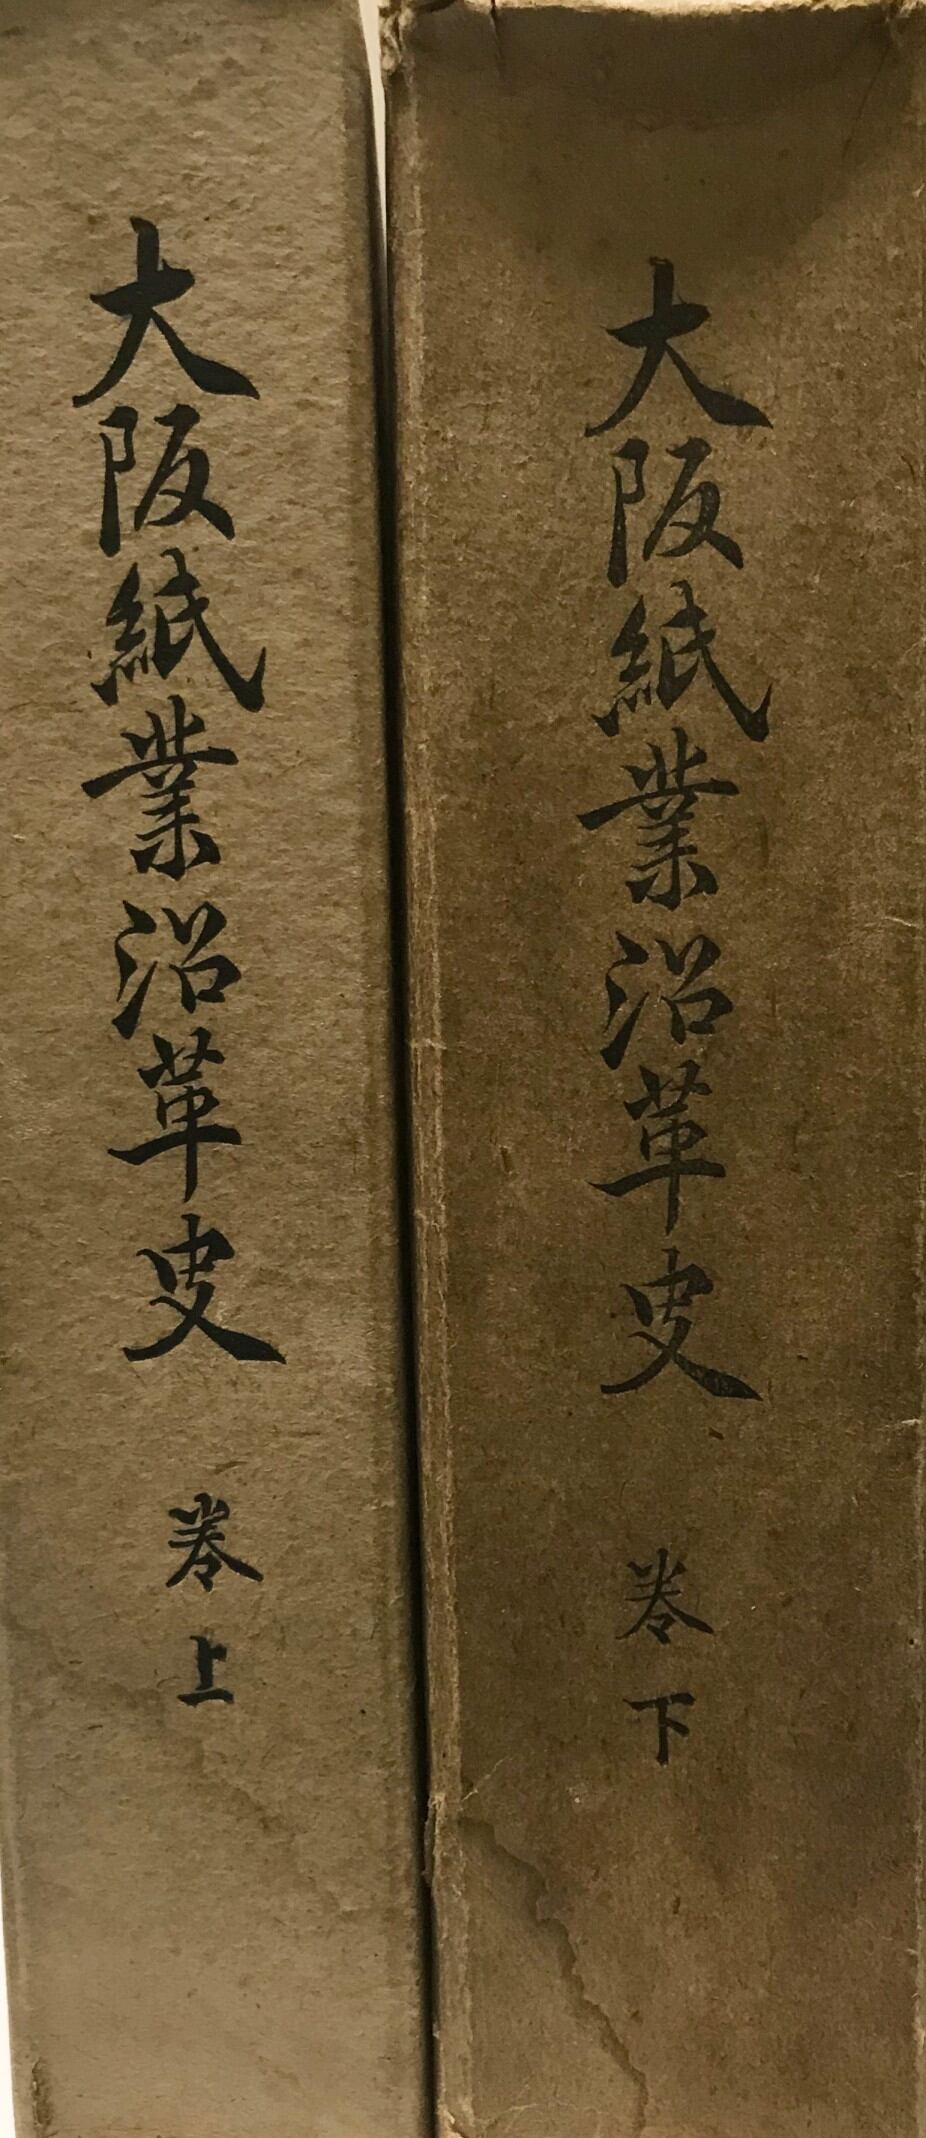 大阪紙業沿革史
巻上
大阪紙業沿革史
巻下